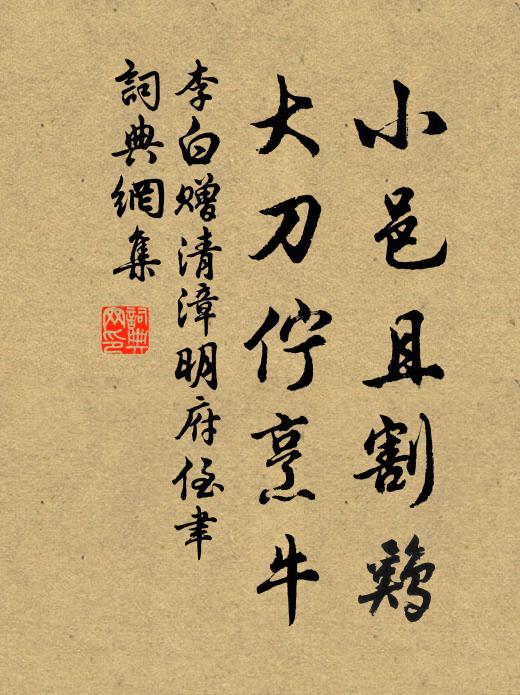 小邑且割鷄
大刀佇烹牛
李白贈清漳明府侄聿
詞典網集
詞典網印